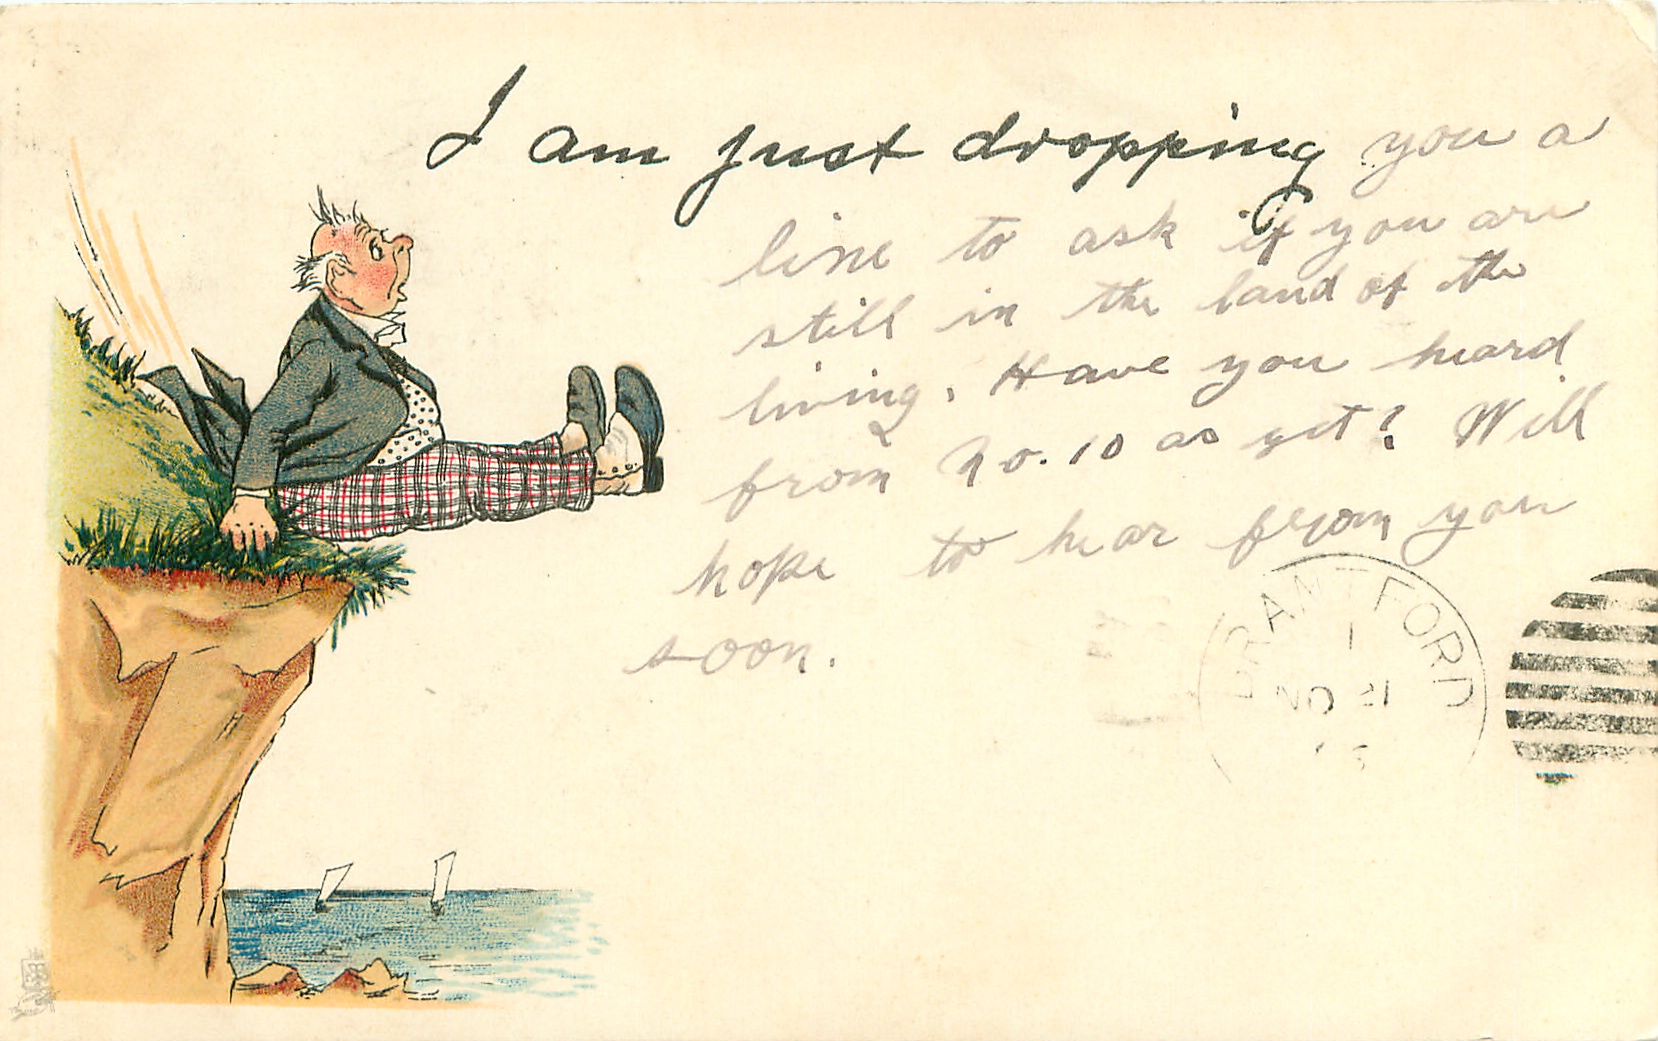 I am just dropping you a
line to ask if you are
still in the land of the
living. Have you heard
from No. 10 as yet? Will
hope to hear from you
soon.
BRANTFORD
1
NO 21